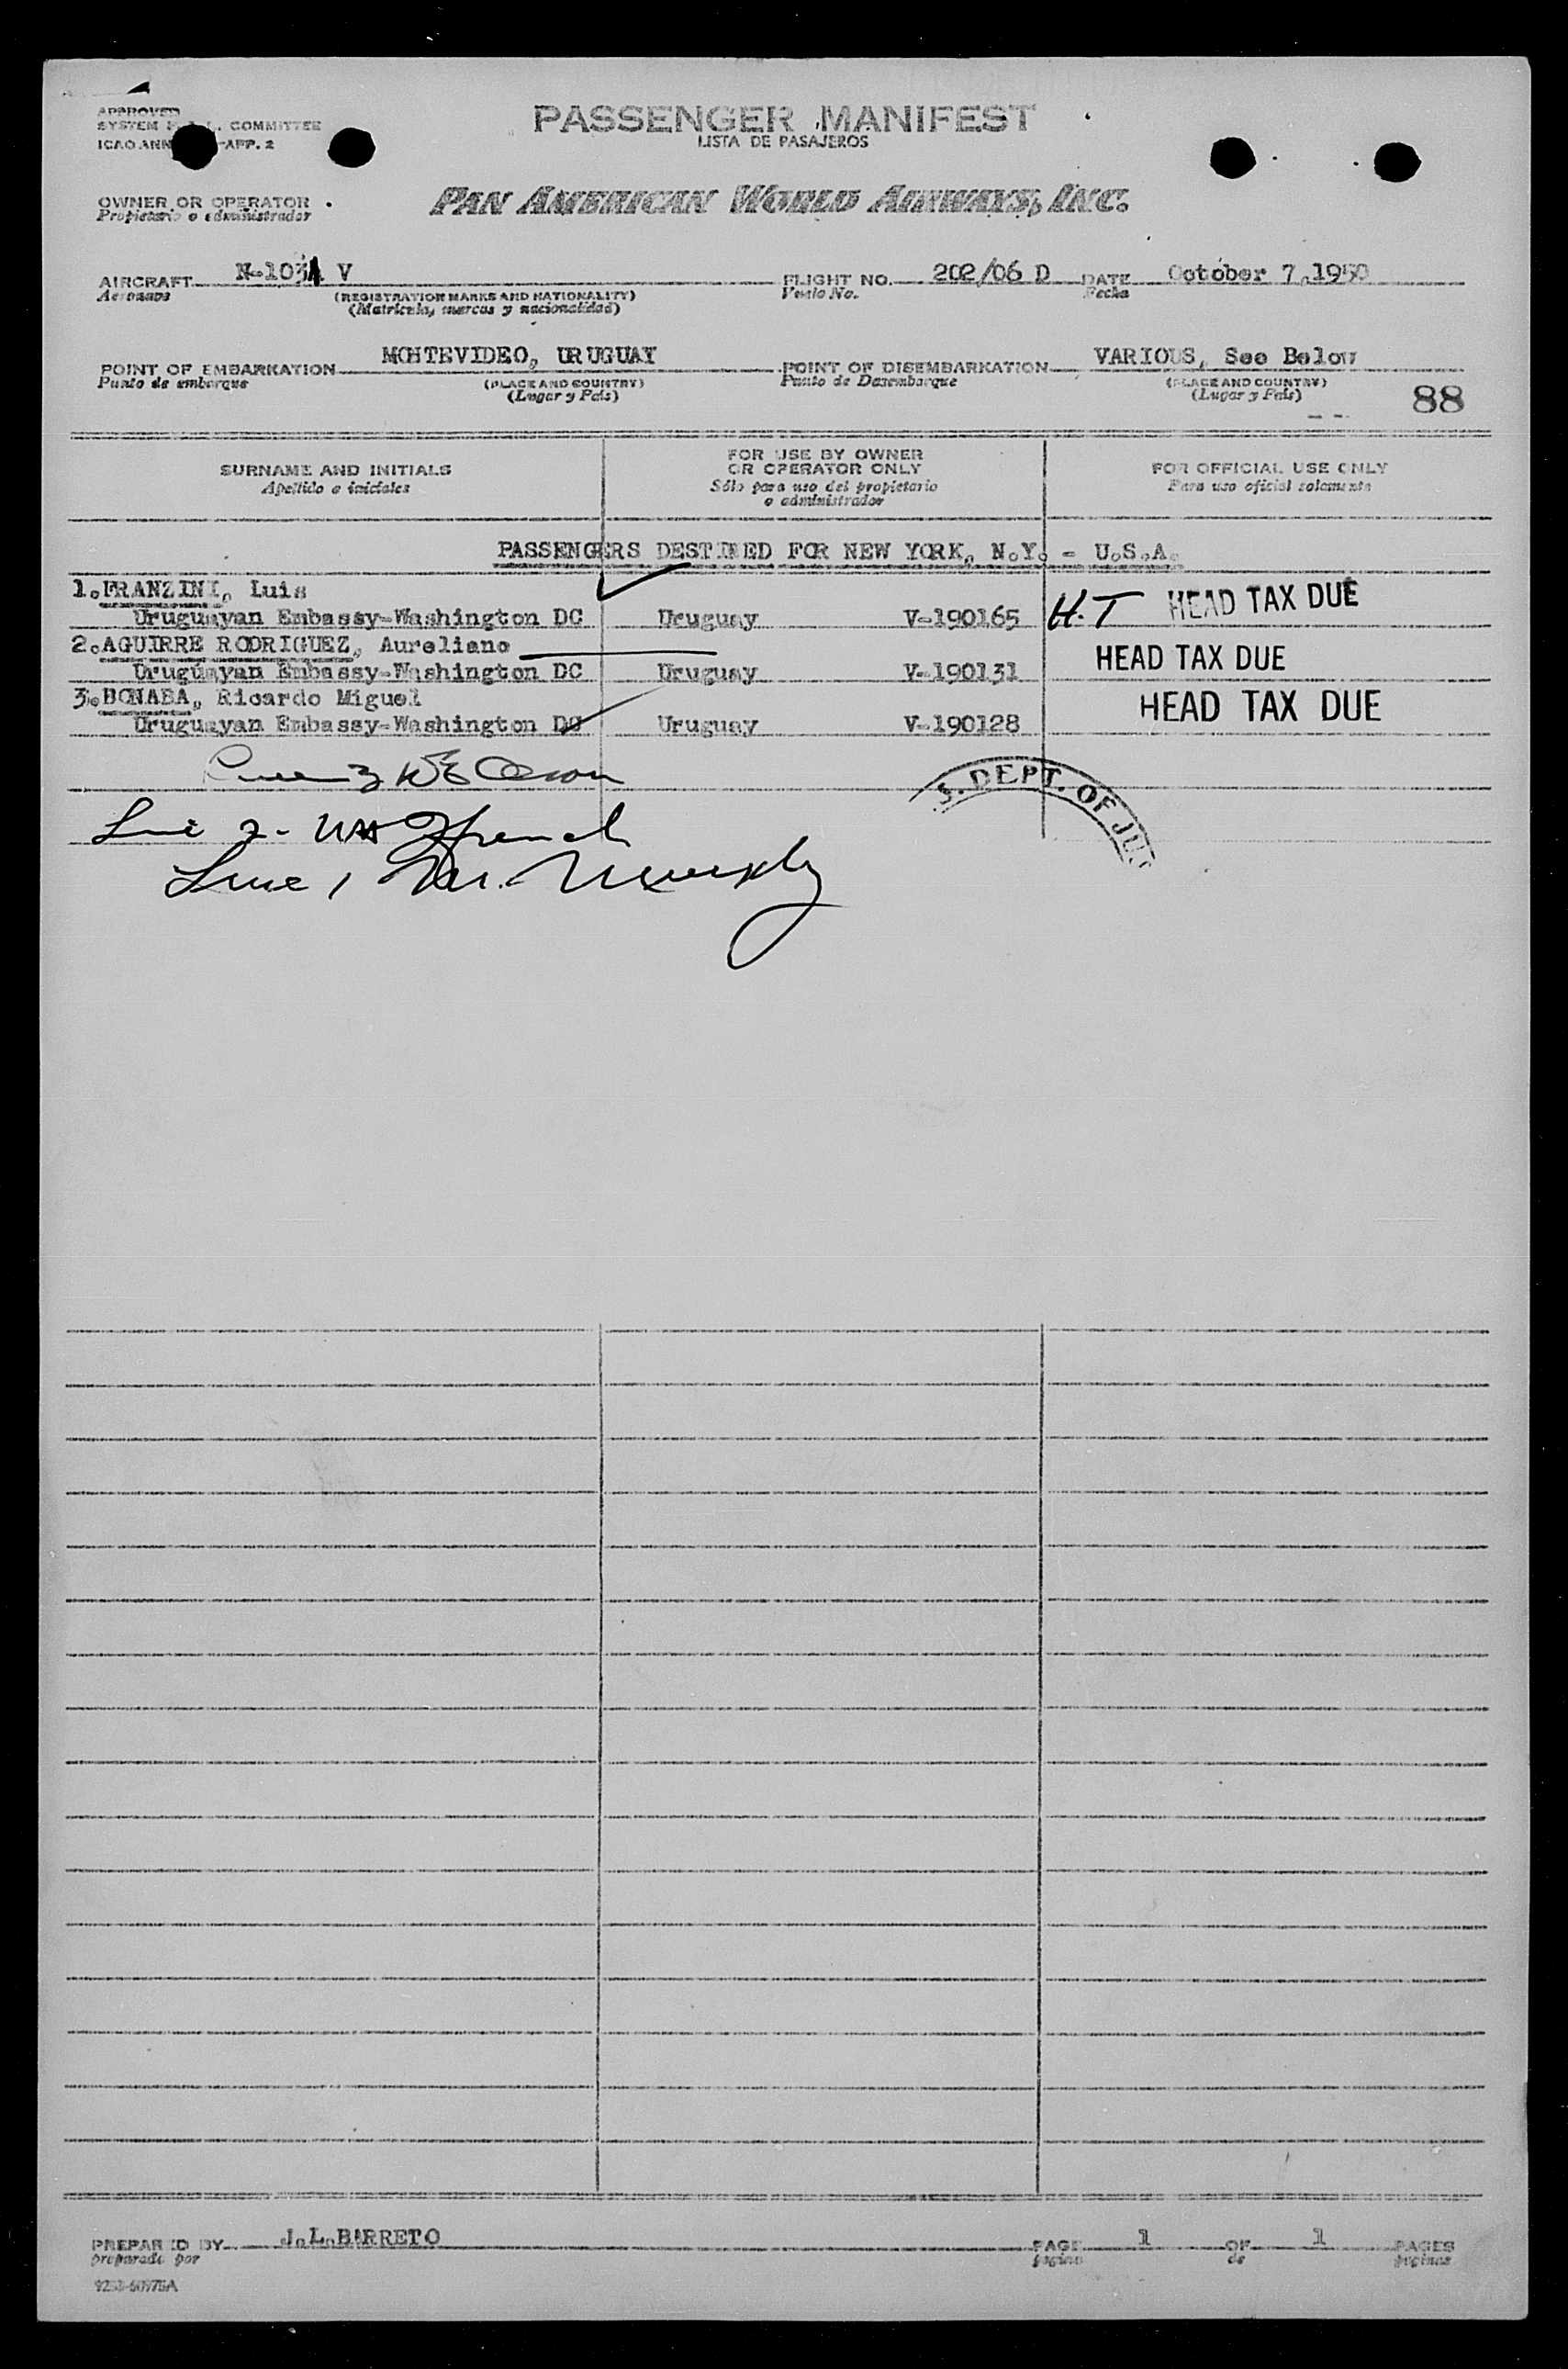 APPROVED
SYSTEM COMMITTEE
ICAO ANN APP. 2
PASSENGER MANIFEST
LISTA DE PASAJEROS
OWNER OR OPERATOR
Propietario o administrador
PAN AMERICAN WORLD AIRWAYS, INC.
AIRCRAFT N-103 V FLIGHT NO. 202/06 D DATE October 7,1950
Aeronave (REGISTRATION MARKS AND NATIONALITY) Vuelo No. Fecha
(Matrícula, marcas y nacionalidad)
POINT OF EMBARKATION MONTEVIDEO, URUGUAY POINT OF DISEMBARKATION VARIOUS, See Below
Punto de embarque (PLACE AND COUNTRY) Punto de Desembarque (PLACE AND COUNTRY)
(Lugar y País) (Lugar y País) 88
SURNAME AND INITIALS FOR USE BY OWNER OR OPERATOR ONLY FOR OFFICIAL USE ONLY
Apellido e iniciales Sólo para uso del propietario o administrador Para uso oficial solamente
PASSENGERS DESTINED FOR NEW YORK, N.Y. - U.S.A.
1.FRANZINI, Luis
Uruguayan Embassy-Washington DC Uruguay V-190165 H.T HEAD TAX DUE
2.AGUIRRE RODRIGUEZ, Aureliano
Uruguayan Embassy-Washington DC Uruguay V-190131 HEAD TAX DUE
3.BONABA, Ricardo Miguel
Uruguayan Embassy-Washington DC Uruguay V-190128 HEAD TAX DUE
3
S. DEPT. OF JUS
2- French
Line 1 M. Murphy
PREPARED BY J.L.BARRETO PAGE 1 OF 1 PAGES
preparado por página de páginas